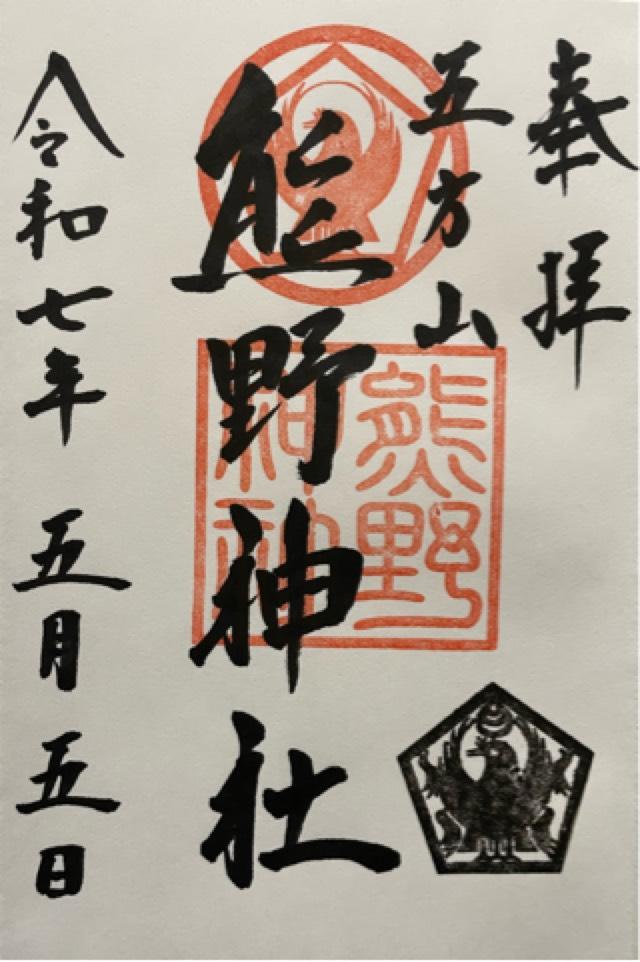 奉拝
五方山
熊野神社
熊野
神社
令和七年 五月五日